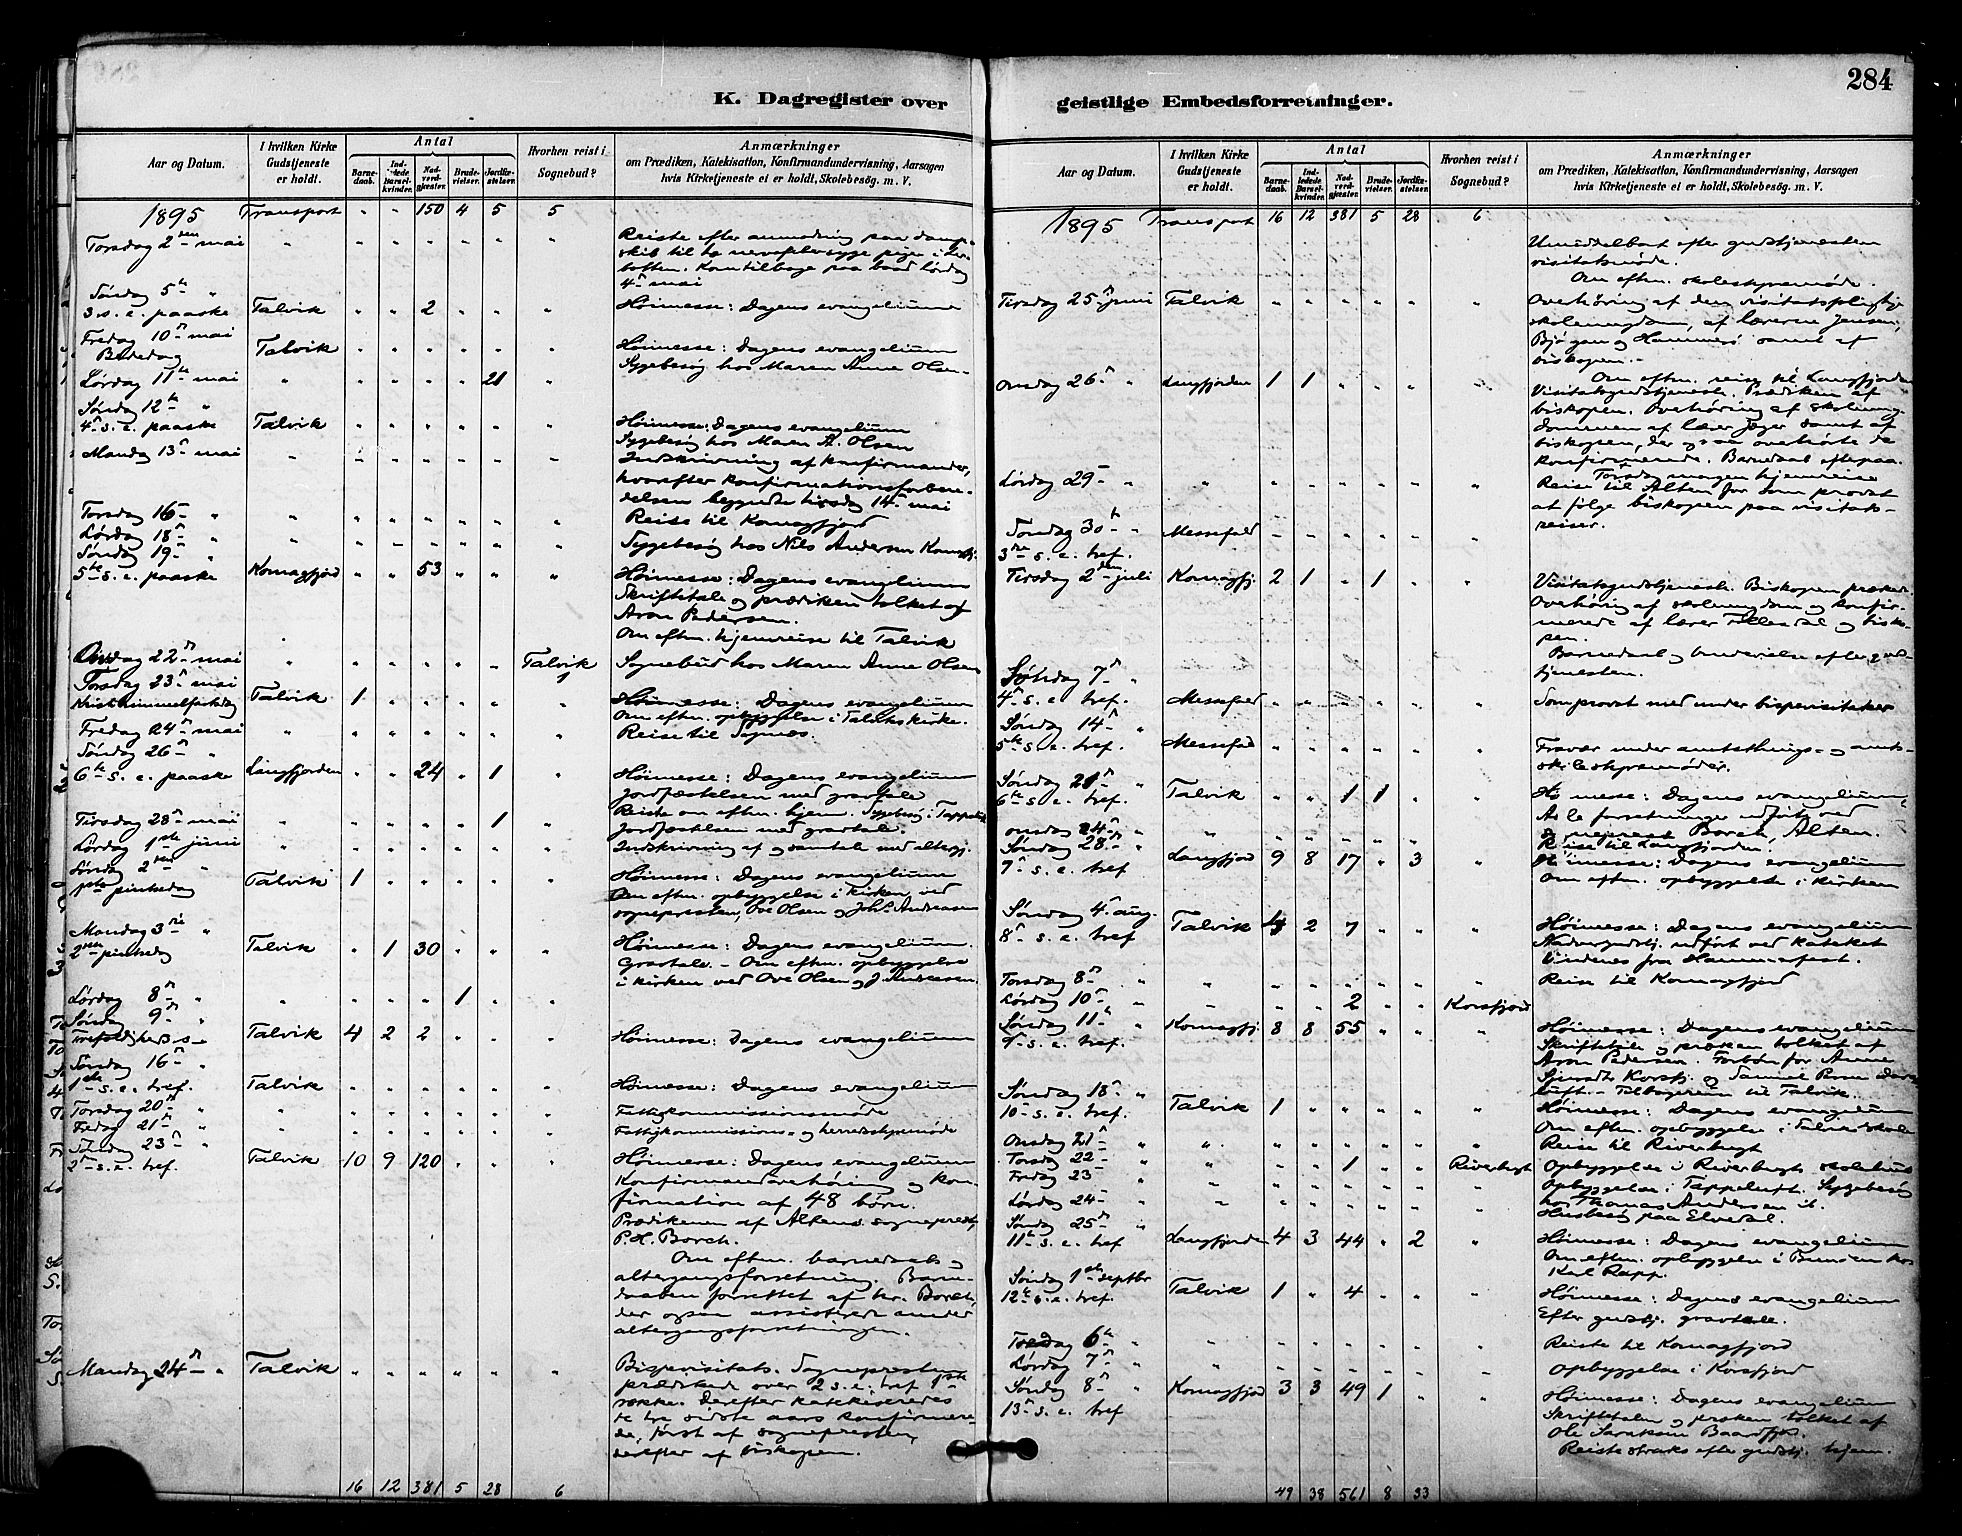 K. Dagregister over
geistlige Embedsforretninger.
284
Aar og Datum.
I hvilken Kirke Gudstjeneste er holdt.
Antal
Barnedaab.
Indledede Barselkvinder.
Nadverdgjester.
Brudevielser.
Jordfæstelser.
Hvorhen reist i Sognebud?
Anmærkninger
om Prædiken, Katekisation, Konfirmandundervisning, Aarsagen
hvis Kirketjeneste ei er holdt, Skolebesøg. m. V.
1895 Transport " " 150 4 5 5
Torsdag 2den mai " " " " " " " Reiste efter anmodning paa damp-
skib til to nervefebersyge piger i
Komtilbage paa baad Lørdag
4de mai
Søndag 5te "
3 s. e. paaske Talvik " " 2 " " " Høimesse: Dagens evangelium
Fredag 10de mai
Bededag Talvik " " " " " " Høimesse: Dagens evangelium
Sygebesøg hos Maren Anne Olsen
Lørdag 11te mai " " " " " 21 "
Søndag 12te "
4de s. e. paaske Talvik " " " " " " Høimesse: Dagens evangelium
Sygebesøg hos Maren A. Olsen
Mandag 13de mai " " " " " " " Indskrivning af konfirmander,
hvorefter konfirmationsforbere-
delsen begyndte tirsdag 14de mai
Torsdag 16de " " " " " " " " Reise til Komagfjord
Lørdag 18de " " " " " " " " Sygebesøg hos Nils Andersen Komagfj.
Søndag 19de "
5te s. e. paaske Komagfjord " " 53 " " " Høimesse: Dagens evangelium
Skriftetale og prædiken tolket af
Aron Pedersen.
Om eftm. hjemreise til Talvik
Onsdag 22de mai " " " " " " Talvik 1 Sognebud hos Maren Anne Olsen
Torsdag 23de mai
Kristi himmelfartsdag Talvik 1 " " " " " Høimesse: Dagens evangelium
Om eftm. opbyggelse i Talviks kirke.
Fredag 24de mai " " " " " " " Reise til Sognæs.
Søndag 26de "
6te s. e. paaske Langfjorden " " 24 " 1 " Høimesse: Dagens evangelium
Jordfæstelsen med gravtale
Reiste om eftm. hjem. Sygebesøg i Tappeluft
Tirsdag 28de mai " " " " " 1 " Jordfæstelsen med gravtale.
Lørdag 1ste juni " " " " " " " Indskrivning af og samtale med altergj.
Søndag 2den "
1ste pintsedag Talvik 1 " " " " " Høimesse: Dagens evangelium
Om eftm. opbyggelse i kirken ved
sognepresten, Ove Olsen og Johs. Andreasen
Mandag 3die "
2den pintsedag Talvik " 1 30 " " " Høimesse: Dagens evangelium.
Gravtale. – Om eftm. opbyggelse
i kirken ved Ove Olsen og J. Andreasen.
Lørdag 8de " " " " " 1 " "
Søndag 9de "
Trefoldigheds s. Talvik 4 2 2 " " " Høimesse: Dagens evangelium
Søndag 16de "
1ste s. e. tref. Talvik " " " " " " Høimesse: Dagens evangelium
Torsdag 20de " " " " " " " " Fattigkommissionsmøde
Fredag 21de " " " " " " " " Fattigkommissions- og herredsstyremøde
Søndag 23de "
2den s. e. tref. Talvik 10 9 120 " " " Høimesse: Dagens evangelium
Konfirmandoverhøring og kon-
firmation af 48 børn.
Prædikenen af Altens sogneprest,
P. H. Borch.
Om eftm. barnedaabs og
altergangsforretning. Barne-
daaben forrettet af hr. Borch,
der ogsaa assisterede under
altergangsforretningen.
Mandag 24de " Talvik " " " " " " Bispevisitats. Sognepresten
prædikede over 2 s. e. tref 1ste
række. Derefter katekiseredes
de tre sidste aars konfirmere-
de, først af sognepresten,
derefter af biskopen.
16 12 381 5 28 6
Aar og Datum.
I hvilken Kirke Gudstjeneste er holdt.
Antal
Barnedaab.
Indledede Barselkvinder.
Nadverdgjester.
Brudevielser.
Jordfæstelser.
Hvorhen reist i Sognebud?
Anmærkninger
om Prædiken, Katekisation, Konfirmandundervisning, Aarsagen
hvis Kirketjeneste ei er holdt, Skolebesøg. m. V.
1895 Transport 16 12 381 5 28 6
Umiddelbart efter gudstjenesten
visitatsmøde.
Om eftm. skolestyremøde.
Tirsdag 25de juni Talvik " " " " " " Overhøring af den visitatspligtige
skoleungdom, af lærerne Jensen,
og Hammerø samt af
biskopen. –
Om eftm. reise til Langfjorden
Onsdag 26de " Langfjorden 1 1 " " " " Visitatsgudstjeneste. Prædiken af
biskopen. Overhøring af skoleung-
dommen af lærer Jæger samt af
biskopen, der ogsaa overhørte de
konfirmerede. Barnedaab efterpaa.
Torsdag morgen hjemreise
Lørdag 29de " " " " " " " " Reise til Alten for som provst
at følge biskopen paa visitats-
reiser.
Søndag 30te "
3die s. e. tref. Messefald " " " " " "
Tirsdag 2den juli Komagfj. 2 1 " 1 " " Visitatsgudstjeneste. Biskopen præked.
Overhøring af skoleungdom og konfir-
merede af lærer Tollesdal og bisko-
pen.
Barnedaab og brudevielse efter guds-
tjenesten.
Søndag 7de "
4de s. e. tref. Messefald " " " " " " Som provst med under bispevisitatser
Søndag 14de "
5te s. e. tref. Messefald " " " " " " Fravær under amtsthings- og amts-
skolestyremøder.
Søndag 21de "
6te s. e. tref. Talvik " " 1 1 " " Høimesse: Dagens evangelium,
Alle forretninger udført ved
sogneprest Borch, Alten.
Onsdag 24de " " " " " " " " Reise til Langfjorden.
Søndag 28de "
7de s. e. tref Langfjord 9 8 17 " 3 " Høimesse: Dagens evangelium
Om eftm. opbyggelse i kirken
Søndag 4de aug.
8de s. e. tref Talvik 4 2 7 " " " Høimesse: Dagens evangelium
Nadvergudstj. udført ved kateket
fra Hammerfest.
Torsdag 8de " " " " " " " " Reise til Komagfjord
Lørdag 10de " " " " 2 " " Korsfjord
Søndag 11te "
9de s. e. tref. Komagfj. 8 8 55 " " " Høimesse: Dagens evangelium
Skriftetale og præken tolket af
Aron Pedersen. Forbøn for Anne
Korsfj. og Samuel
Tilbagereise til Talvik.
Søndag 18de "
10de s. e. tref. Talvik 1 " " " " " Høimesse: Dagens evangelium
Om eftm. opbyggelse i Talvik skole
Onsdag 21de " " " " " " " " Reise til Riverbugt
Torsdag 22de " " " " 1 " " Riverbugt Opbyggelse i Riverbugt skolehus
Fredag 23de " " " " " " " " Opbyggelse i Tappeluft. Sygebesøg
Lørdag 24de " " " " " " " " hos Thomas Andersen ib.
Husbesøg paa Elvedal.
Søndag 25de "
11te s. e. tref Langfjorden 4 3 44 " 2 " Høimesse: Dagens evangelium
Om eftm. opbyggelse i Bunden hos
Karl Rapp.
Søndag 1ste septbr
12te s. e. tref. Talvik 1 " 4 " " " Høimesse: Dagens evangelium
Efter gudstj. gravtale.
Fredag 6te " " " " " " " " Reiste til Komagfjord
Lørdag 7de " " " " " " " " Opbyggelse i Korsfjord
Søndag 8de "
13de s. e. tref Komagfjord 3 3 49 1 " " Høimesse: Dagens evangelium
Skriftetalen og præken tolket af
Ole
Reiste straks efter gudstj. hjem.
49 38 561 8 33